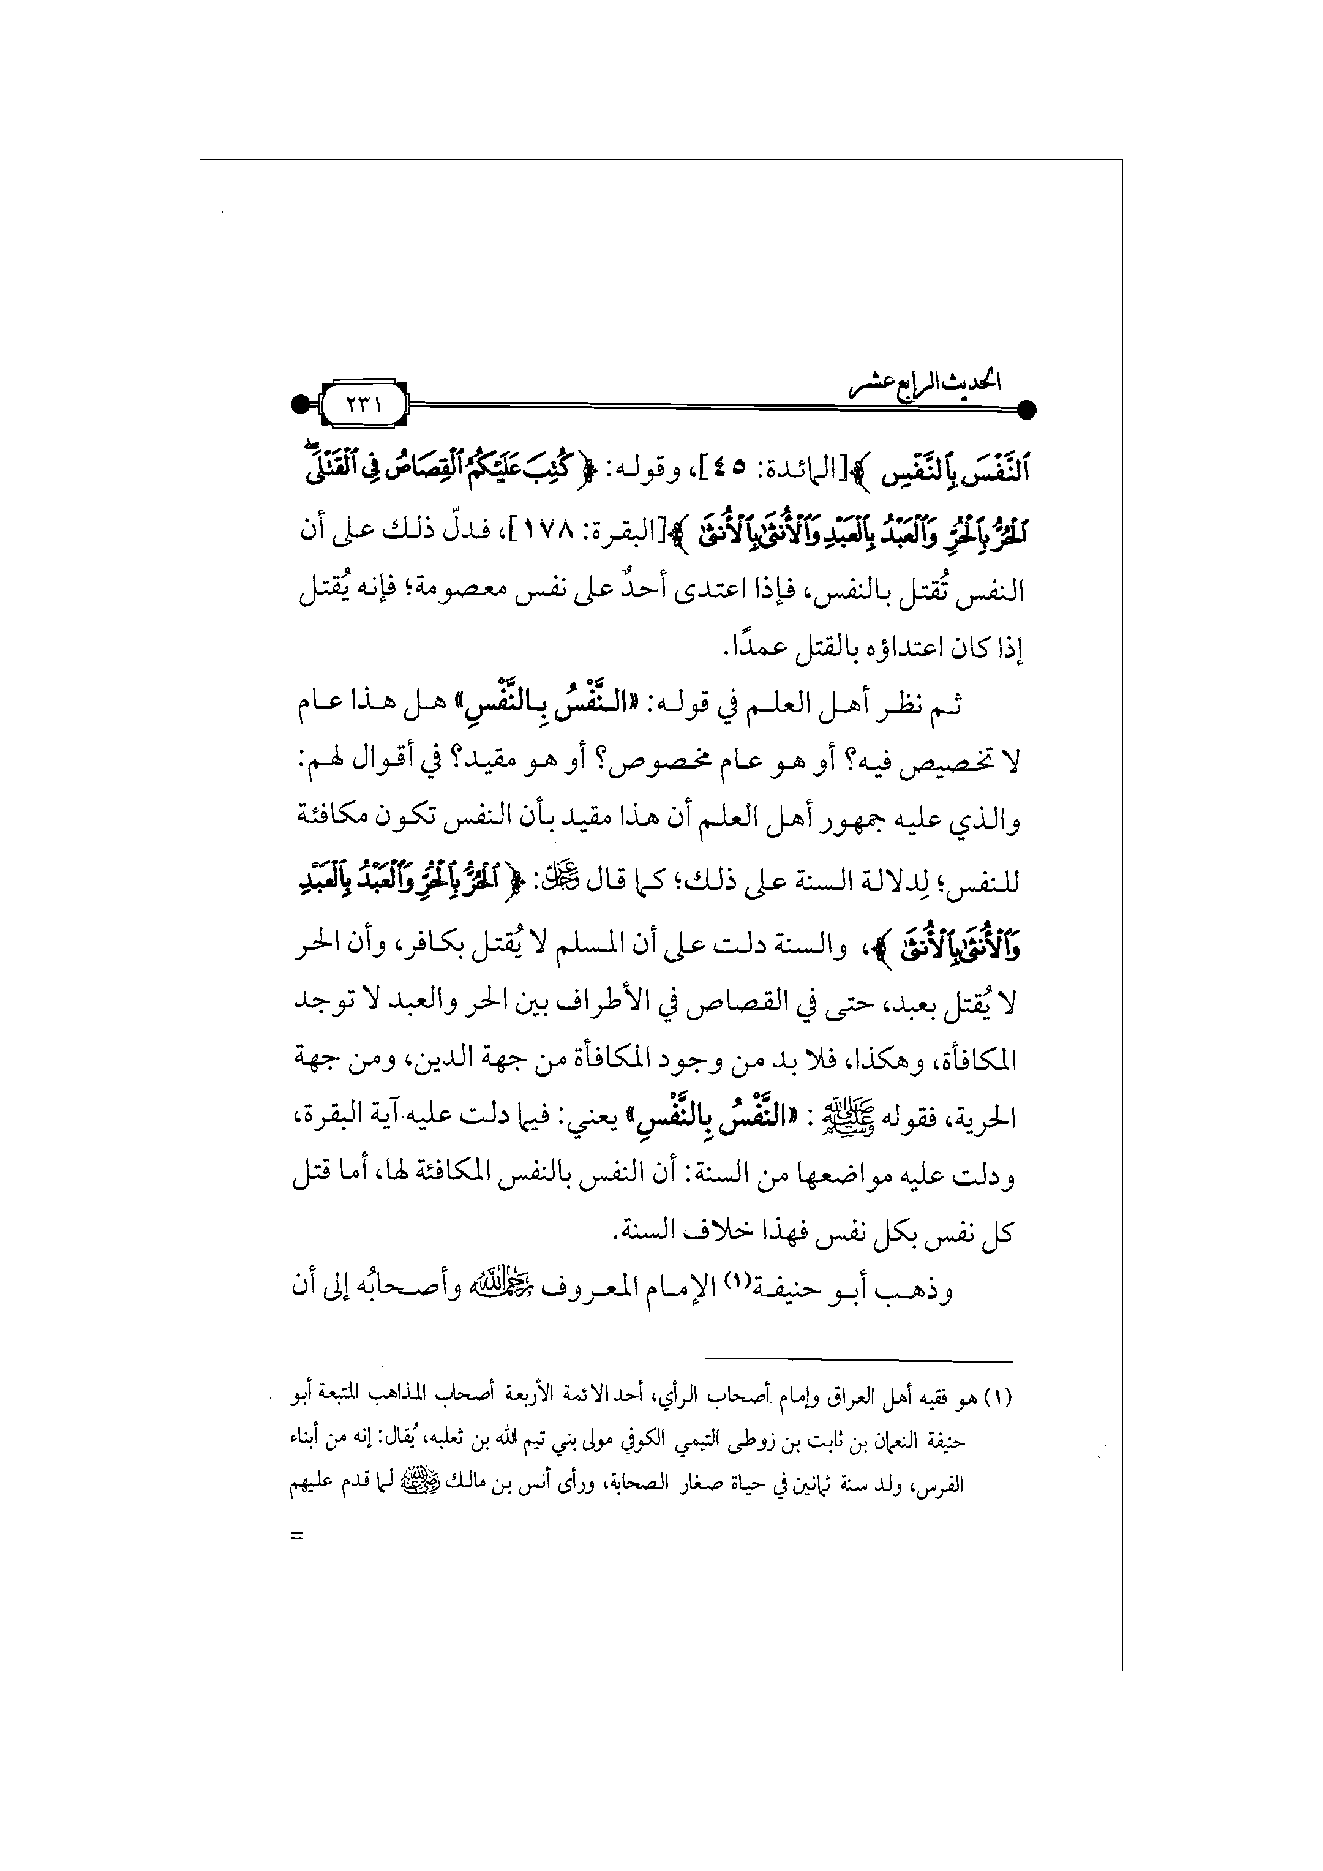 الحديث الرابع عشر
٢٣١
ٱلنَّفْسَ بِٱلنَّفْسِ ﴾[المائدة: ٤٥]، وقوله: ﴿ كُتِبَ عَلَيْكُمُ ٱلْقِصَاصُ فِى ٱلْقَتْلَى ۖ
ٱلْحُرُّ بِٱلْحُرِّ وَٱلْعَبْدُ بِٱلْعَبْدِ وَٱلْأُنثَىٰ بِٱلْأُنثَىٰ ﴾[البقرة: ١٧٨]، فدلّ ذلك على أن
النفس تُقتل بالنفس، فإذا اعتدى أحدٌ على نفس معصومة؛ فإنه يُقتل
إذا كان اعتداؤه بالقتل عمدًا.
ثم نظر أهل العلم في قوله: «النَّفْسُ بِالنَّفْسِ» هل هذا عام
لا تخصيص فيه؟ أو هو عام مخصوص؟ أو هو مقيد؟ في أقوال لهم:
والذي عليه جمهور أهل العلم أن هذا مقيد بأن النفس تكون مكافئة
للنفس؛ لِدلالة السنة على ذلك؛ كما قال ﷻ: ﴿ ٱلْحُرُّ بِٱلْحُرِّ وَٱلْعَبْدُ بِٱلْعَبْدِ
وَٱلْأُنثَىٰ بِٱلْأُنثَىٰ ﴾، والسنة دلت على أن المسلم لا يُقتل بكافر، وأن الحر
لا يُقتل بعبد، حتى في القصاص في الأطراف بين الحر والعبد لا توجد
المكافأة، وهكذا، فلا بد من وجود المكافأة من جهة الدين، ومن جهة
الحرية، فقوله ﷺ : «النَّفْسُ بِالنَّفْسِ» يعني: فيما دلت عليه آية البقرة،
ودلت عليه مواضعها من السنة: أن النفس بالنفس المكافئة لها، أما قتل
كل نفس بكل نفس فهذا خلاف السنة.
وذهب أبو حنيفة(١) الإمام المعروف رحمه الله وأصحابُه إلى أن
(١) هو فقيه أهل العراق وإمام أصحاب الرأي، أحد الائمة الأربعة أصحاب المذاهب المتبعة أبو
حنيفة النعمان بن ثابت بن زوطى التيمي الكوفي مولى بني تيم الله بن ثعلبه، يُقال: إنه من أبناء
الفرس، ولد سنة ثمانين في حياة صغار الصحابة، ورأى أنس بن مالك رضي الله عنه لما قدم عليهم
=